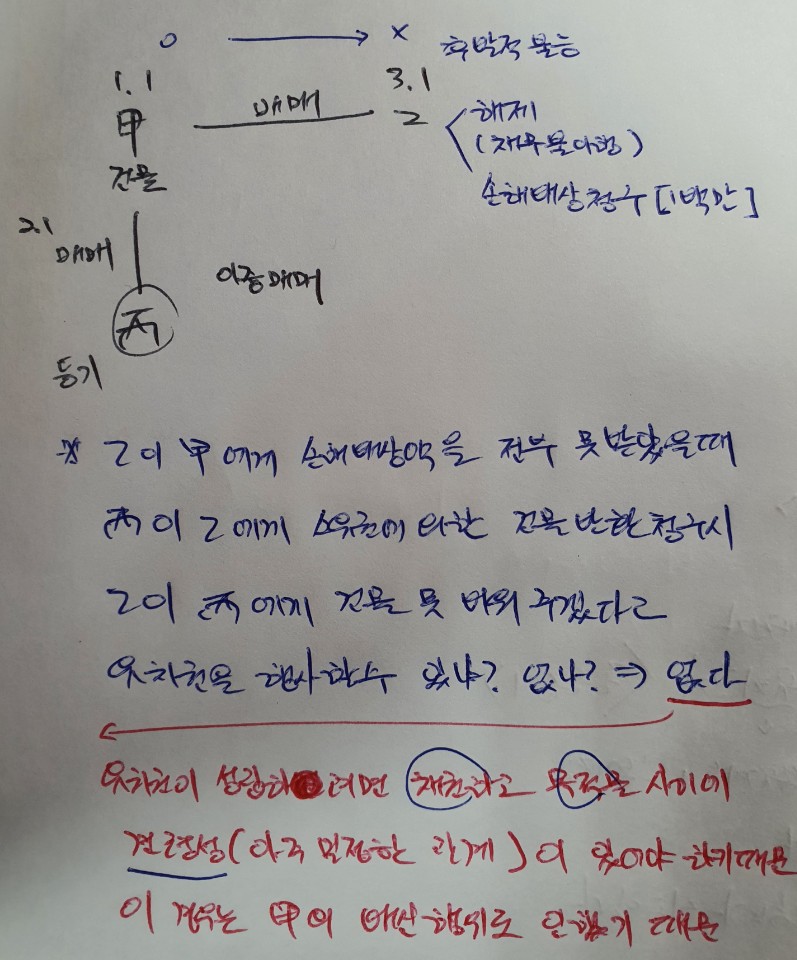 O → X 후발적 불능
1.1 3.1
甲 매매 乙 해제
건물 (채무불이행)
손해배상청구 [1백만]
2.1
매매 이중매매
丙
등기
※ 乙이 甲에게 손해배상액을 전부 못받았을때
丙이 乙에게 소유권에 의한 건물반환청구시
乙이 丙에게 건물을 못 비워 주겠다고
유치권을 행사할수 있나? 없나? ⇒ 없다
유치권이 성립하려면 채권하고 목적물 사이에
견련성(아주 밀접한 관계)이 있어야 하기때문
이 경우는 甲의 배신행위로 인했기 때문